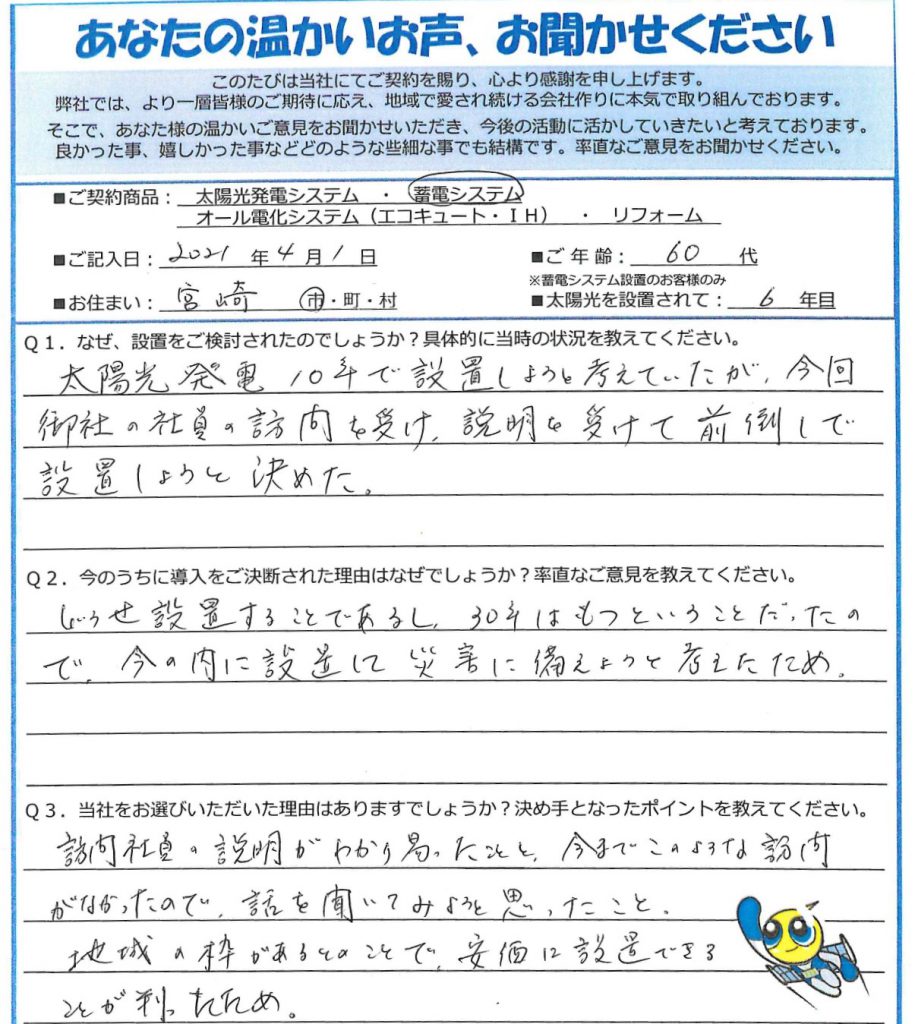 あなたの温かいお声、お聞かせください
このたびは当社にてご契約を賜り、心より感謝を申し上げます。
弊社では、より一層皆様のご期待に応え、地域で愛され続ける会社作りに本気で取り組んでおります。
そこで、あなた様の温かいご意見をお聞かせいただき、今後の活動に活かしていきたいと考えております。
良かった事、嬉しかった事などどのような些細な事でも結構です。率直なご意見をお聞かせください。
■ご契約商品： 太陽光発電システム ・ 蓄電システム
オール電化システム（エコキュート・ＩＨ） ・ リフォーム
■ご記入日： 2021 年 4 月 1 日 ■ご 年 齢： 60 代
※蓄電システム設置のお客様のみ
■お住まい： 宮崎 市・町・村 ■太陽光を設置されて： 6 年目
Ｑ１．なぜ、設置をご検討されたのでしょうか？具体的に当時の状況を教えてください。
太陽光発電10年で設置しようと考えていたが、今回
御社の社員の訪問を受け、説明を受けて前倒しで
設置しようと決めた。
Ｑ２．今のうちに導入をご決断された理由はなぜでしょうか？率直なご意見を教えてください。
どうせ設置することであるし、30年はもつということだったの
で、今の内に設置して災害に備えようと考えたため。
Ｑ３．当社をお選びいただいた理由はありますでしょうか？決め手となったポイントを教えてください。
訪問社員の説明がわかり易ったことと、今までこのような訪問
がなかったので、話を聞いてみようと思ったこと。
地域の枠があるとのことで、安価に設置できる
ことが判ったため。